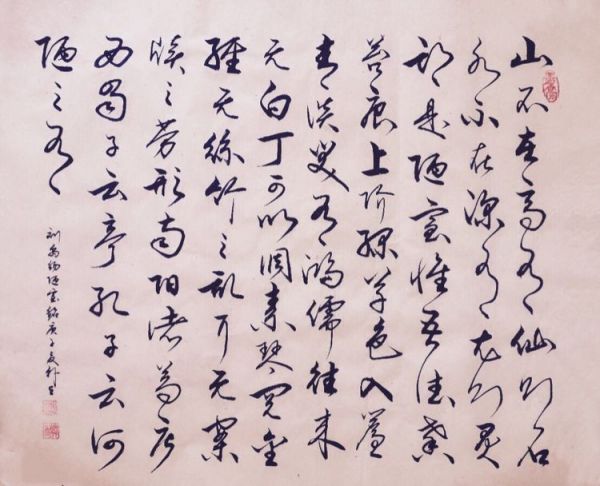 山不在高有仙则名
水不在深有龙则灵
斯是陋室惟吾德馨
苔痕上阶绿草色入帘
青谈笑有鸿儒往来
无白丁可以调素琴阅金
經无絲竹之乱耳无案
牍之劳形南阳诸葛庐
西蜀子云亭孔子云何
陋之有
刘禹锡陋室铭庚子夏